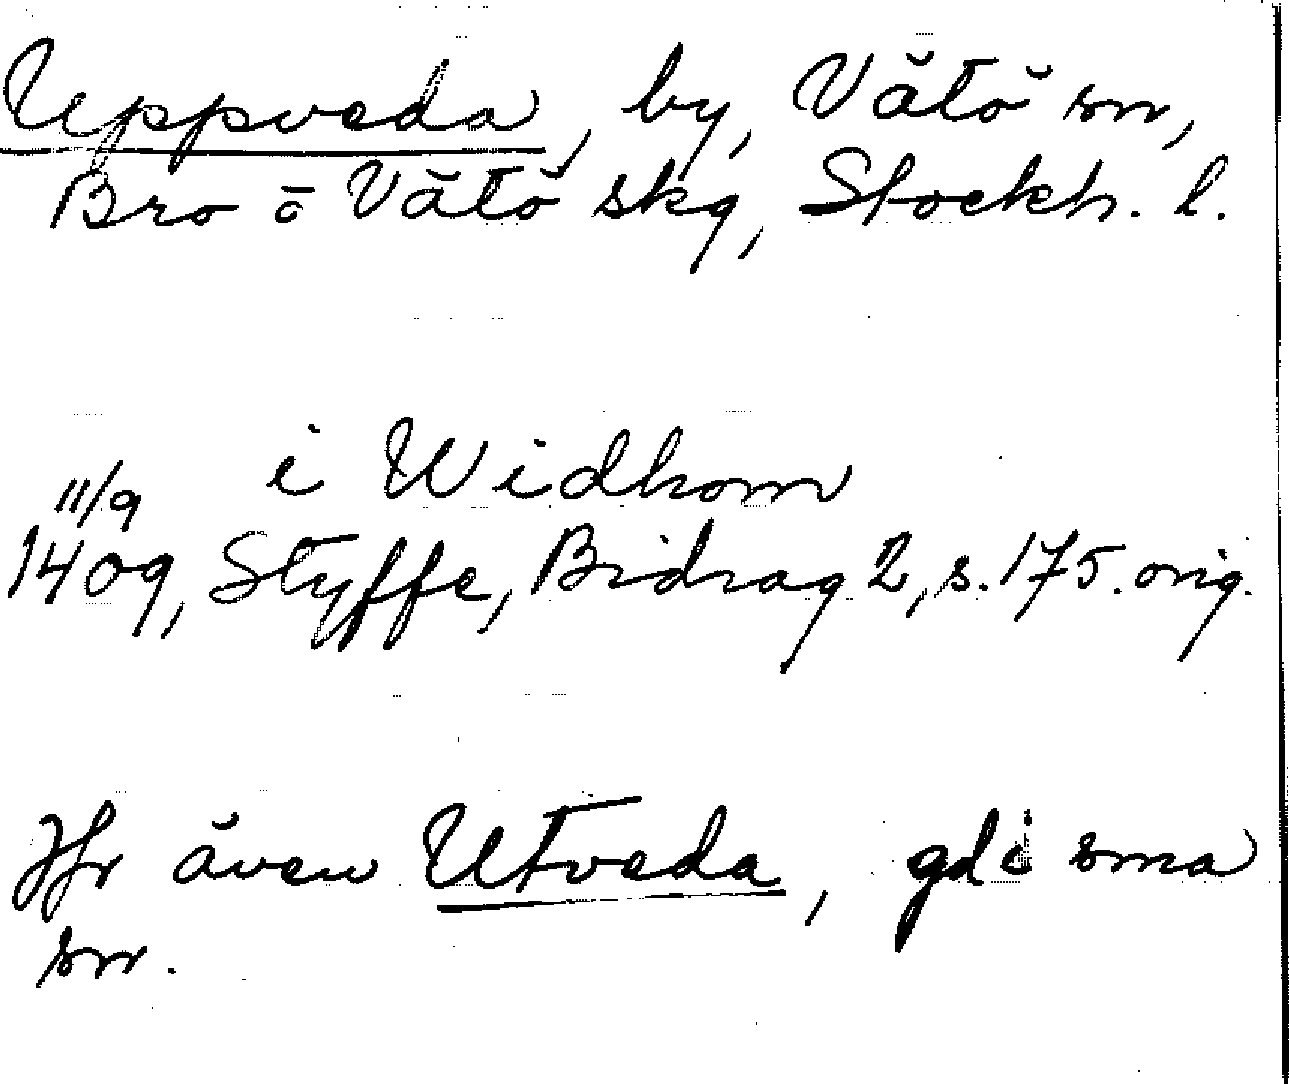 Uppveda, by, Vätö sn,
Bro o Vätö skg, Stockh. l.
i Widhom
11/9
1409, Styffe, Bidrag 2, s. 175. orig.
Jfr även Utveda, gd i sma
sn.